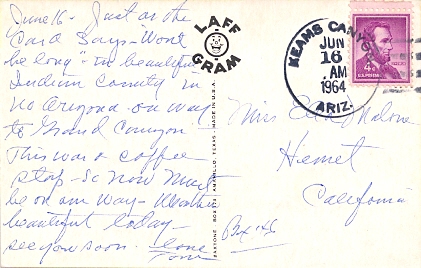 June 16 - Just as the
Card Says - Wont
be long - in beautiful
Indian County in
No Arizona - on way
to Grand Canyon
This was a coffee
stop - So now must
be on our way - Weather
beautiful today -
see you soon. Love
LAFF
GRAM
BAXTONE BOX 773 AMARILLO, TEXAS - MADE IN U.S.A.
KEAMS CANYON
JUN
16
AM
1964
ARIZ.
4¢
Miss Malone
Hemet
California
Box 146